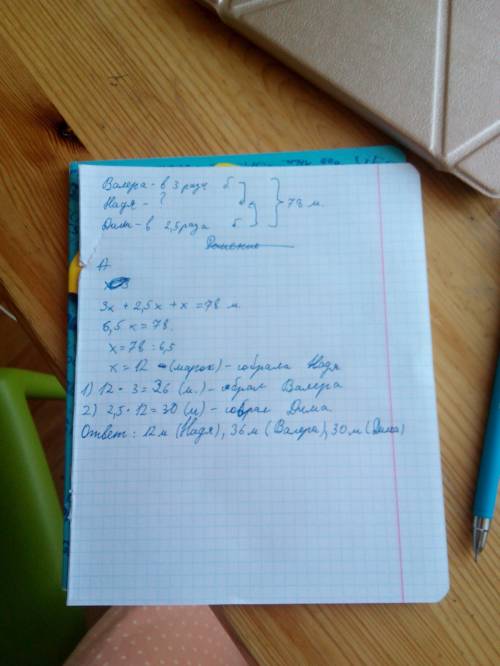 Валера - в 3 раза б
Надя - ?
78 м.
Дима - в 2,5 раза б
Решение
3x + 2,5x + x = 78 м.
6,5 x = 78.
x = 78 : 6,5
x = 12 - (марок) - собрала Надя
1) 12 · 3 = 36 (м.) - собрал Валера
2) 2,5 · 12 = 30 (м) - собрал Дима
Ответ: 12 м (Надя), 36 м (Валера), 30 м (Дима)